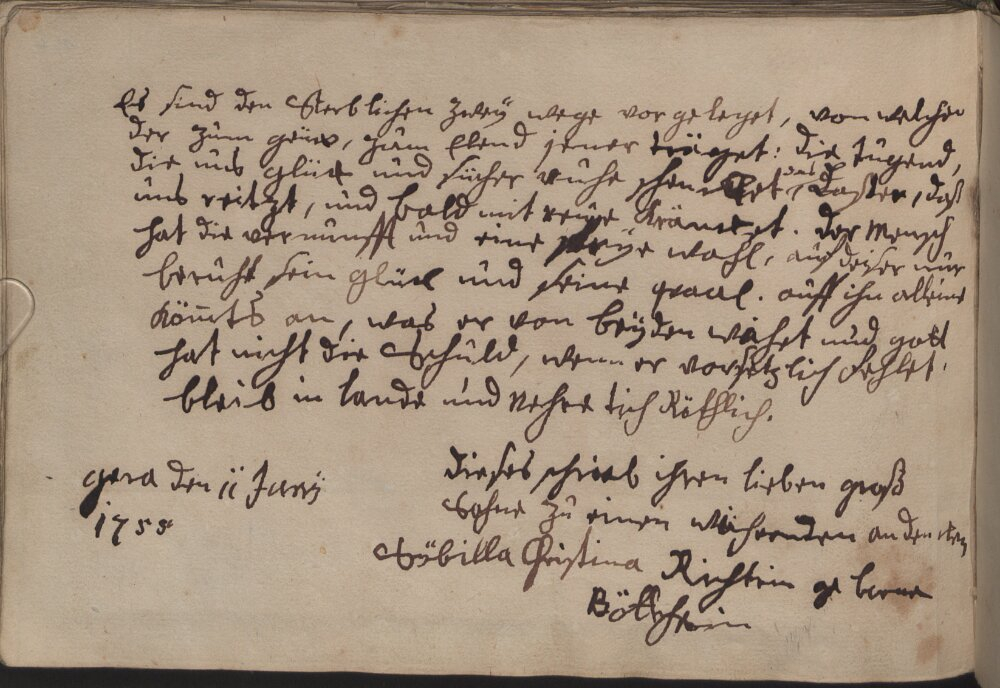 Es sind den Sterblichen zweÿ wege vorgeleget, von welchen
der zum glück, zum Elend jener träget: die tugend,
die uns glück und sücher ruhe schencket, das Laster, daß
uns reitzt, und bald mit reüe Kräncket. der Mensch
hat die vernunfft und eine freÿe wahl, auf dieser nur
beruht sein glück und seine qvaal. auff ihn alleine
Köm̅ts an, was er von beÿden wählet und gott
hat nicht die Schuld, wenn er vorsetzlich fehlet.
bleib im lande und Nehre tich Röthlich.
gera den 11 Junÿ
dieses schrieb ihren lieben groß
1755
Sohne zu einen währenden andencken
Sÿbilla Christina Richterin ge borne